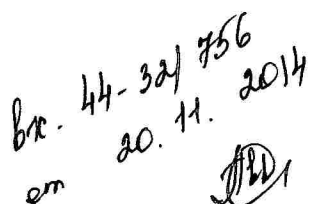 вх. 44-32/756
от 20.11.2014